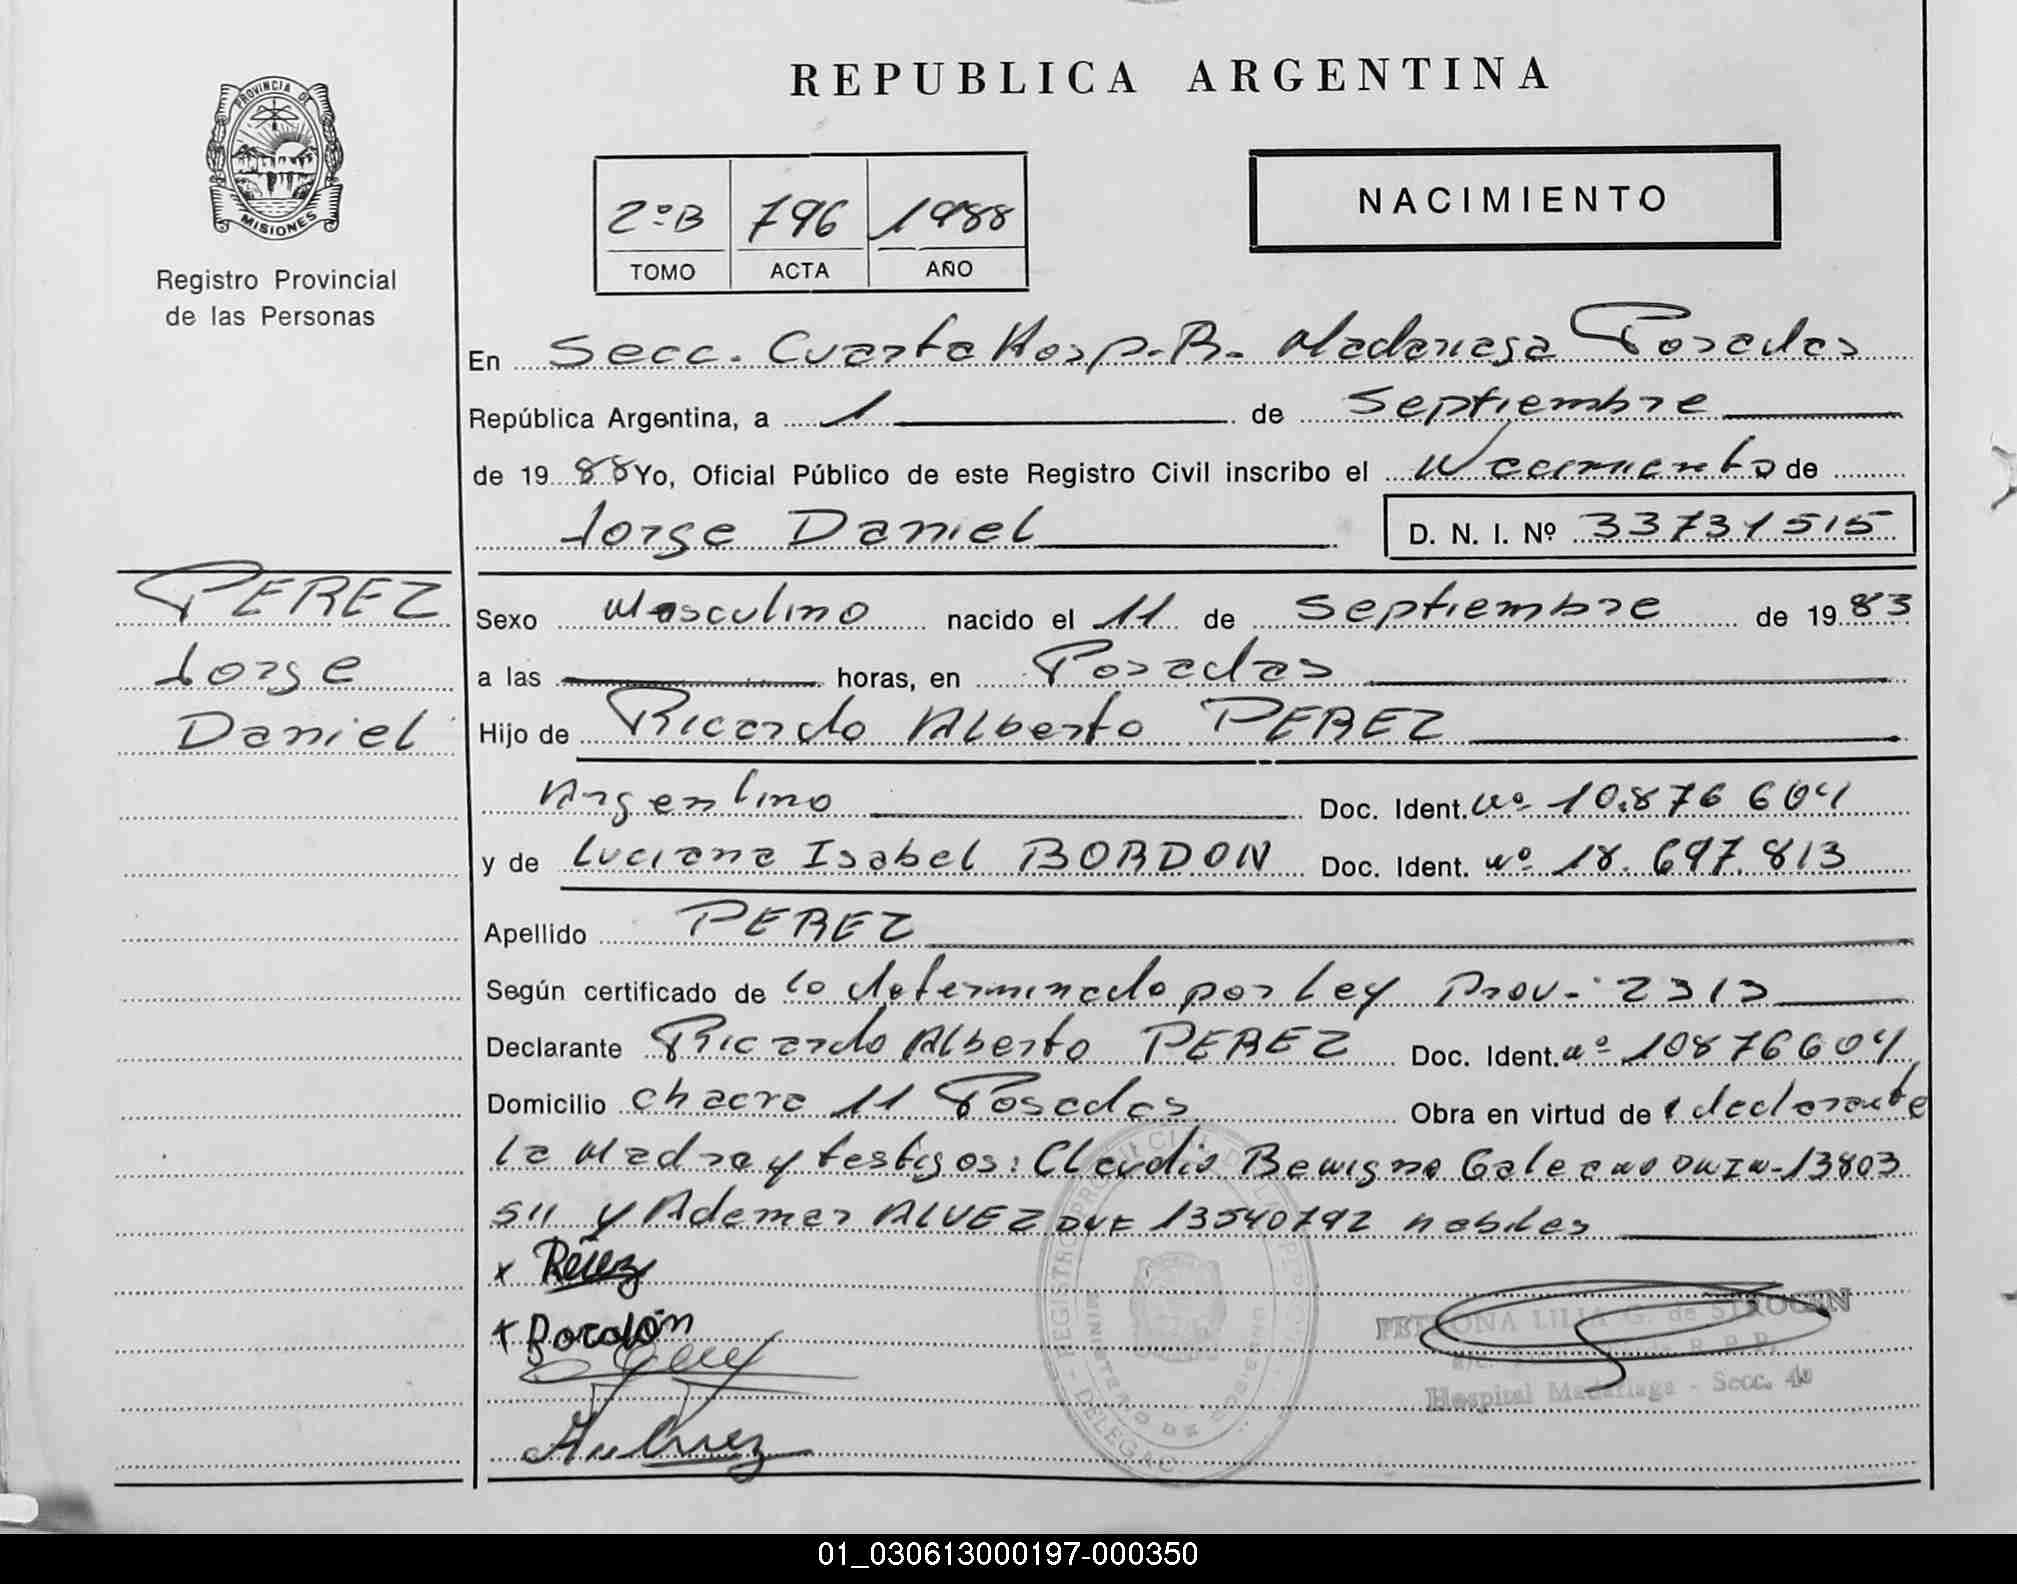 PROVINCIA DE
MISIONES
Registro Provincial
de las Personas
REPUBLICA ARGENTINA
2ºB 796 1988
TOMO ACTA AÑO
NACIMIENTO
En Secc. Cuarta Hosp. R. Madariaga Posadas
República Argentina, a 1 de Septiembre
de 1988 Yo, Oficial Público de este Registro Civil inscribo el Nacimiento de
Jorge Daniel D. N. I. Nº 33731515
PEREZ
Jorge
Daniel
Sexo Masculino nacido el 11 de Septiembre de 1983
a las horas, en Posadas
Hijo de Ricardo Alberto PEREZ
Argentino Doc. Ident. Nº 10.876 604
y de Luciana Isabel BORDON Doc. Ident. Nº 18.697.813
Apellido PEREZ
Según certificado de lo determinado por Ley Prov. 2313
Declarante Ricardo Alberto PEREZ Doc. Ident. Nº 10876604
Domicilio chacra 11 Posadas Obra en virtud de declarante
la Madre y testigos: Claudio Benigno Galeano DNI Nº 13803
511 y Ademar ALVEZ DNI 13540792 habiles
x Pérez
x Bordón
PETRONA LILIA G. de STROGEN
R.P.P.
Hospital Madariaga - Secc. 4a
01_030613000197-000350